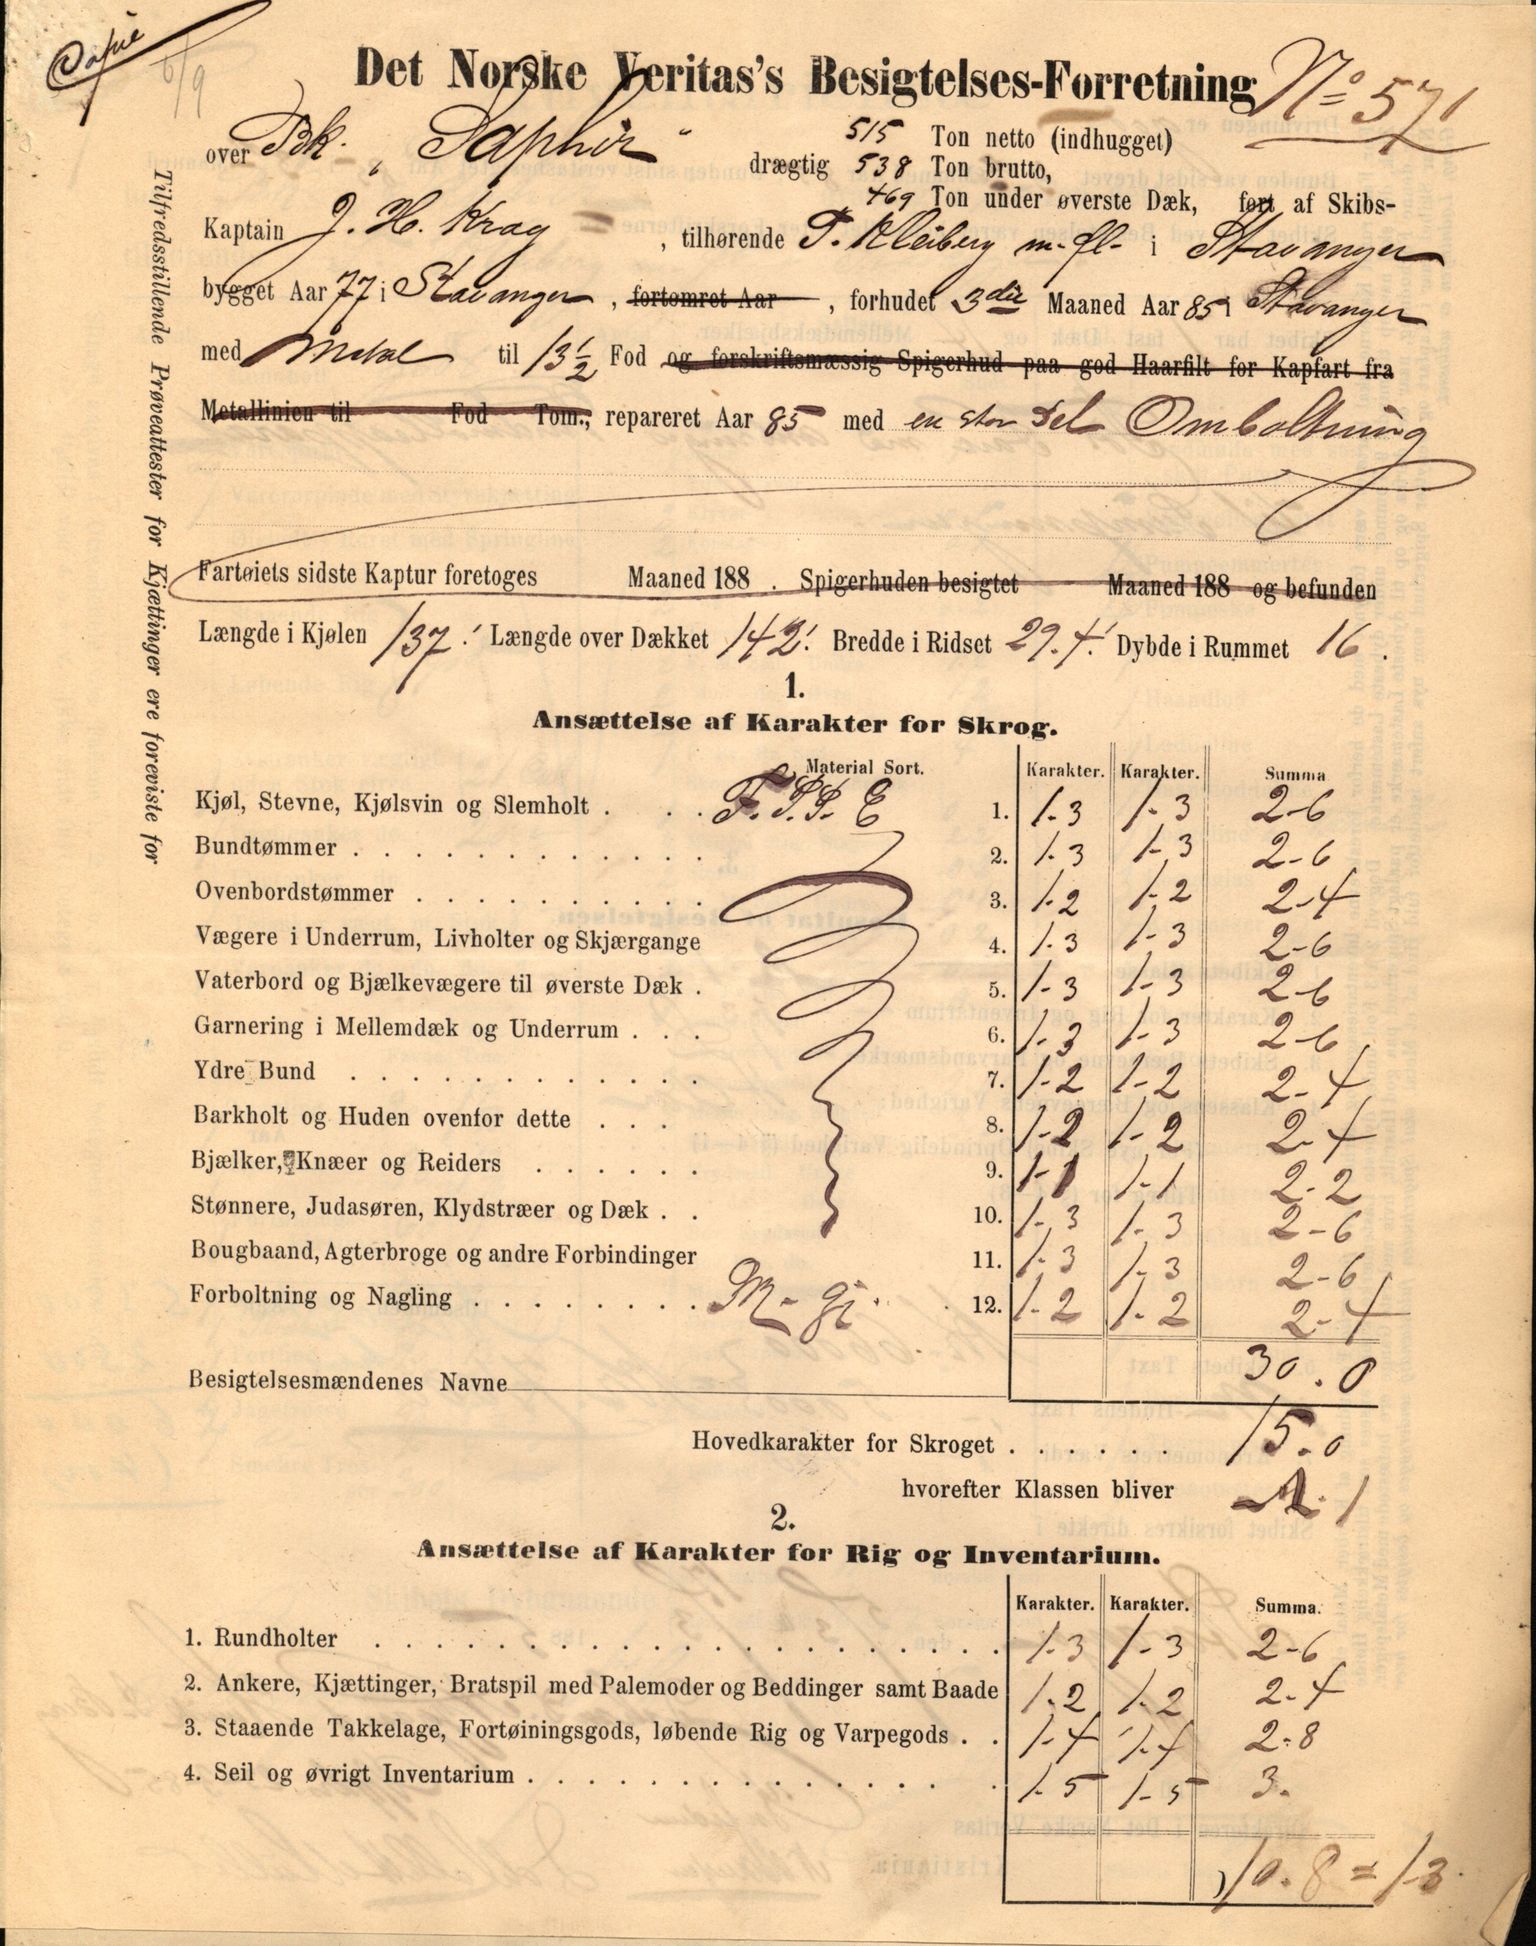 6/9
Det Norske Veritas's Besigtelses-Forretning No 571
over Bk. „Saphir“ drægtig 515 Ton netto (indhugget)
538 Ton brutto,
469 Ton under øverste Dæk, ført af Skibs-
Kaptain J. H. Krag , tilhørende P. Kleiberg m. fl. i Stavanger
bygget Aar 77 i Stavanger , fortømret Aar , forhudet 3die Maaned Aar 85 i Stavanger
med Metal til 13½ Fod og forskriftsmæssig Spigerhud paa god Haarfilt for Kapfart fra
Metallinien til Fod Tom., repareret Aar 85 med en stor Del Omboltning
Fartøiets sidste Kaptur foretoges Maaned 188 . Spigerhuden besigtet Maaned 188 og befunden
Længde i Kjølen 137.' Længde over Dækket 142.' Bredde i Ridset 29.4.' Dybde i Rummet 16 .
Tilfredsstillende Prøveattester for Kjættinger ere foreviste for
1.
Ansættelse af Karakter for Skrog.
Material Sort. Karakter. Karakter. Summa
Kjøl, Stevne, Kjølsvin og Slemholt . . . F. P.P. E 1. 1-3 1-3 2-6
Bundtømmer . . . . . . . . . . . . 2. 1-3 1-3 2-6
Ovenbordstømmer . . . . . . . . . . 3. 1-2 1-2 2-4
Vægere i Underrum, Livholter og Skjærgange 4. 1-3 1-3 2-6
Vaterbord og Bjælkevægere til øverste Dæk . 5. 1-3 1-3 2-6
Garnering i Mellemdæk og Underrum . . . 6. 1-3 1-3 2-6
Ydre Bund . . . . . . . . . . . . 7. 1-2 1-2 2-4
Barkholt og Huden ovenfor dette . . . 8. 1-2 1-2 2-4
Bjælker, Knæer og Reiders . . . . . . 9. 1-1 1-1 2-2
Stønnere, Judasøren, Klydstræer og Dæk . . 10. 1-3 1-3 2-6
Bougbaand, Agterbroge og andre Forbindinger 11. 1-3 1-3 2-6
Forboltning og Nagling . . . . . . . . M- gj. 12. 1-2 1-2 2-4
30.0
Besigtelsesmændenes Navne
Hovedkarakter for Skroget . . . . . . 15.0
hvorefter Klassen bliver A. 1
2.
Ansættelse af Karakter for Rig og Inventarium.
Karakter. Karakter. Summa.
1. Rundholter . . . . . . . . . . . . . . . . . . . 1-3 1-3 2-6
2. Ankere, Kjættinger, Bratspil med Palemoder og Beddinger samt Baade 1.2 1-2 2-4
3. Staaende Takkelage, Fortøiningsgods, løbende Rig og Varpegods . . 1-4 1-4 2-8
4. Seil og øvrigt Inventarium . . . . . . . . . . . . . . 1-5 1-5 3.
10.8 = 1-3.